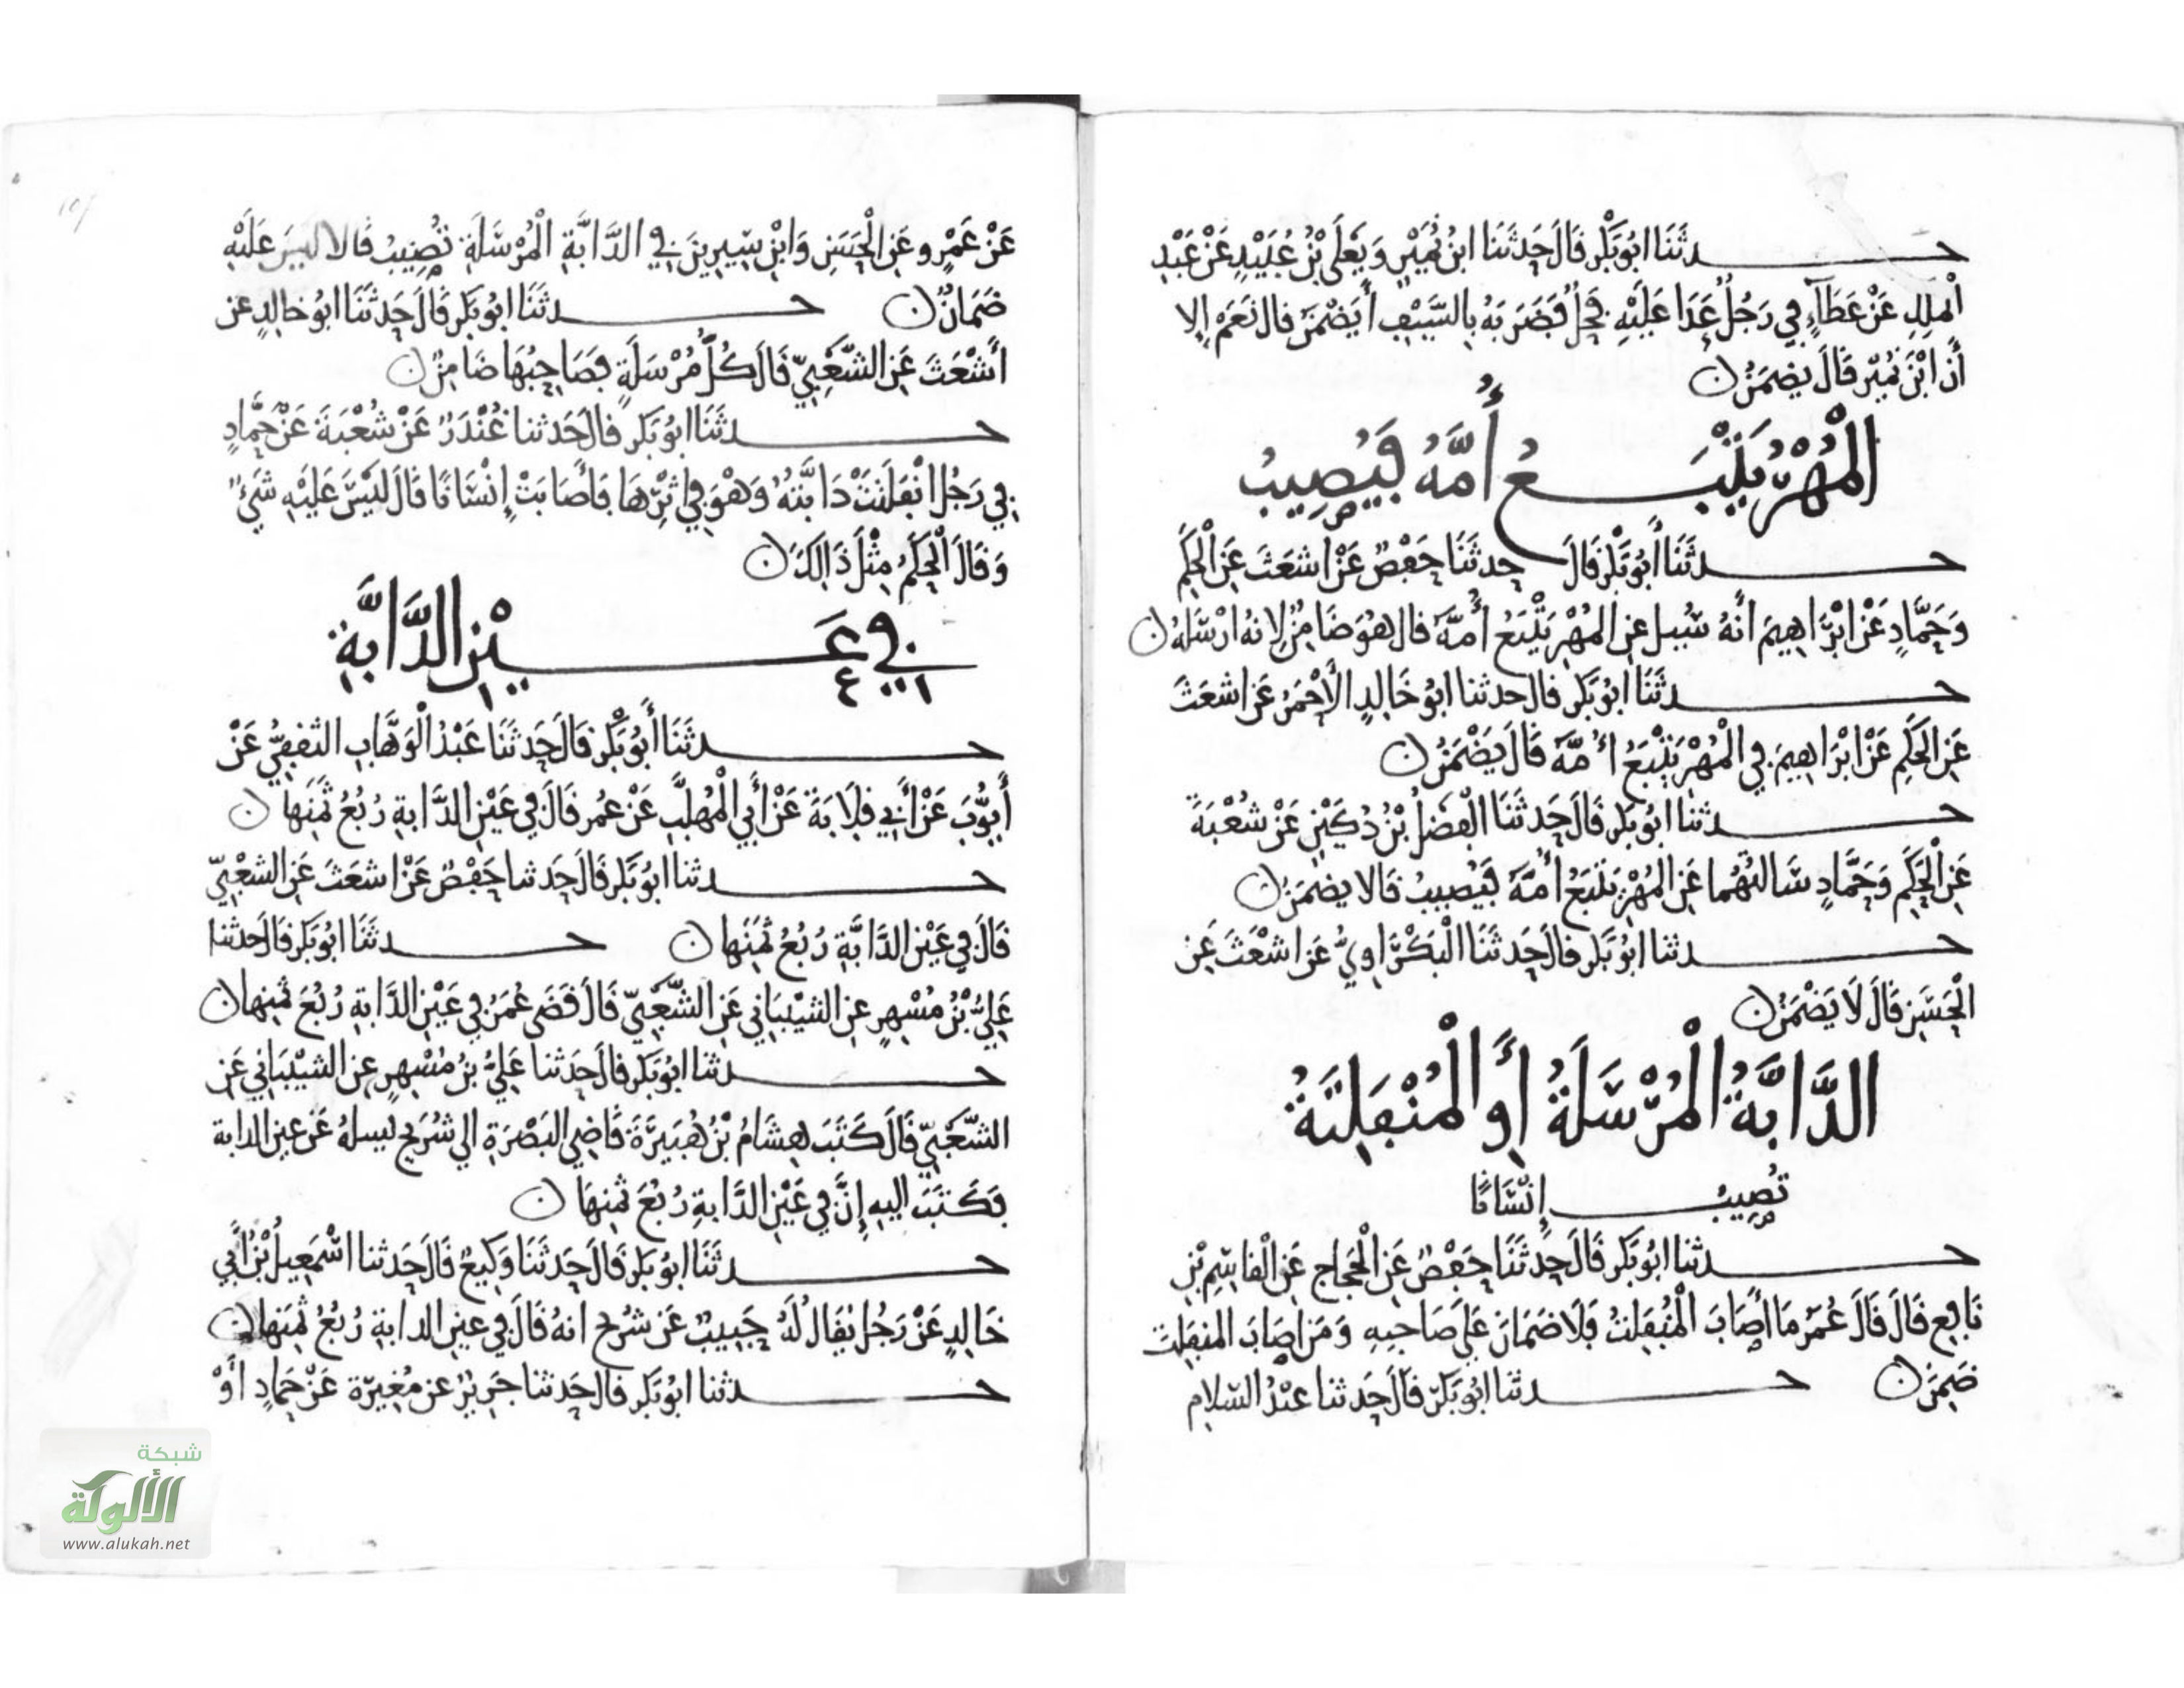 حدثَنَا ابُو بَكْر قَالَ حَدثَنَا ابنُ نُمَيْرٍ وَيَعْلَى بْنُ عُبَيْدٍ عَنْ عَبْدِ
الْمَلِكِ عَنْ عَطَآءٍ فِي رَجُلٍ عَدَا عَلَيْهِ فَحْلٌ فَضَرَبَهُ بِالسَّيْفِ أَيَضْمَنُ قال نَعَمْ إِلا
أَنَّ ابْنَ نُمَيْر قَالَ يضمَنُ ن
الْمُهْرُ يَتْبَعُ أُمَّهُ فَيُصِيبُ
حدثَنَا أَبُو بَكْر قَالَ حدثَنَا حَفْصٌ عَنْ اشعَثَ عَنِ الْحَكَمِ
وَحَمَّادٍ عَنْ ابْرَاهِيمَ أَنَّهُ سُيل عنِ المُهْرِ يَتْبَعُ أُمَّهُ قال هُوَ ضَامِنٌ لِانهُ ارْسَلهُ ن
حدثَنَا ابُو بَكْر قال حدثنا ابُو خَالِدٍ الأَحْمَرُ عَن اشعَثَ
عَنِ الحَكَمِ عَنْ ابْرَاهِيمَ فِي الْمُهْرِ يَتْبَعُ أُمَّهُ قَالَ يَضْمَنُ ن
حدثنا ابُو بَكْر قَالَ حَدثَنَا الْفَضلُ بْنُ دُكَيْنٍ عَنْ شُعْبَةَ
عَنِ الْحَكَمِ وَحَمَّادٍ سَالتُهُما عَنِ المُهْرِ يَتْبَعُ أُمَّهُ فَيُصِيبُ قَالا يضمَنُ ن
حدثنا ابُو بَكْر قال حَدثَنَا الْبَكْرَاوِيُّ عَن اشْعَثَ عَنِ
الْحَسَنِ قَالَ لَا يَضْمَنُ ن
الدَّابَّةُ الْمُرْسَلَةُ أَوِ الْمُنْفَلِتَةُ
تُصِيبُ إِنْسَانًا
حدثنا ابُو بَكْر قَالَ حَدثَنَا حَفْصٌ عَنِ الْحَجاج عَنِ الْقاسِمِ بْنِ
نَافِعٍ قَالَ قَالَ عُمَرُ مَا أَصَابَ الْمُنْفَلِتُ فَلَا ضَمَانَ عَلَى صَاحِبِهِ وَمَن اصَابَ المنفَلِتَ
ضَمِنَ ن حدثنا ابُو بَكْر قَالَ حَدثنا عبْدُ السَّلامِ
عَنْ عَمْرٍو عَنِ الْحَسَنِ وَابْنِ سِيرِينَ فِي الدَّابَّةِ الْمُرْسَلَةِ تُصِيبُ قَالا ليْسَ عَلَيْهِ
ضَمَانٌ ن حدثَنَا ابُو بَكْر قَالَ حَدثَنَا ابُو خَالِدٍ عن
أَشْعَثَ عَنِ الشَّعْبِيِّ قَالَ كُلُّ مُرْسَلَةٍ فَصَاحِبُهَا ضَامِنٌ ن
حدثَنَا ابُو بَكْر قال حَدثنا غُنْدَرٌ عَنْ شُعْبَةَ عَنْ حَمَّادٍ
فِي رَجُلٍ انْفَلَتَتْ دَابَّتُهُ وَهُوَ فِي اثْرِهَا فَأَصَابَتْ إِنْسَانًا قَالَ لَيْسَ عَلَيْهِ شَيْءٌ
وَقَالَ الْحَكَمُ مِثْلَ ذَالِكَ ن
فِي عَيْنِ الدَّابَّةِ
حدثَنَا أَبُو بَكْر قَالَ حَدثَنَا عَبْدُ الْوَهَّابِ الثقفِيُّ عَنْ
أَيُّوبَ عَنْ أَبِي قِلَابَةَ عَنْ أَبِي الْمُهَلَّبِ عَنْ عُمر قَالَ فِي عَيْنِ الدَّابةِ رُبُعُ ثَمَنِهَا ن
حدثنا ابُو بَكْر قَالَ حَدثنا حَفْصٌ عَنْ اشعَثَ عَنِ الشعْبِيِّ
قَالَ فِي عَيْنِ الدَّابَّةِ رُبُعُ ثَمَنِهَا ن حدثَنَا ابُو بَكْر قَالَ حَدثنا
عَلِيُّ بْنُ مُسْهِرٍ عنِ الشيْبَانِي عَنِ الشَّعْبِيِّ قَالَ قَضَى عُمَرُ فِي عَيْنِ الدَّابةِ رُبُعَ ثمنِها ن
حدثنا ابُو بَكْر قال حَدثنا عَلِيُّ بنُ مُسْهِرٍ عنِ الشيْبَانِي عَنِ
الشَّعْبِيِّ قَالَ كَتَبَ هِشَامُ بْنُ هُبَيْرَةَ قَاضِي البَصْرَةِ الي شُرَيح يَسلهُ عَن عين الدابة
فَكَتَبَ اليهِ إِنَّ فِي عَيْنِ الدَّابةِ رُبُعَ ثمنِهَا ن
حدثَنَا ابُو بَكْر قَالَ حَدثَنَا وَكِيعٌ قَالَ حَدثنا اسْمَعِيلُ بْنُ أَبِي
خَالِدٍ عَنْ رَجُلٍ يُقَالُ لَهُ حَبِيبٌ عَن شُرَيح انهُ قَالَ فِي عينِ الدابةِ رُبُعُ ثَمَنِها ن
حدثنا ابُو بَكْر قال حَدثنا جَرِيرٌ عن مُغِيرَة عَنْ حَمادٍ أَوْ
شبكة
الألوكة
www.alukah.net